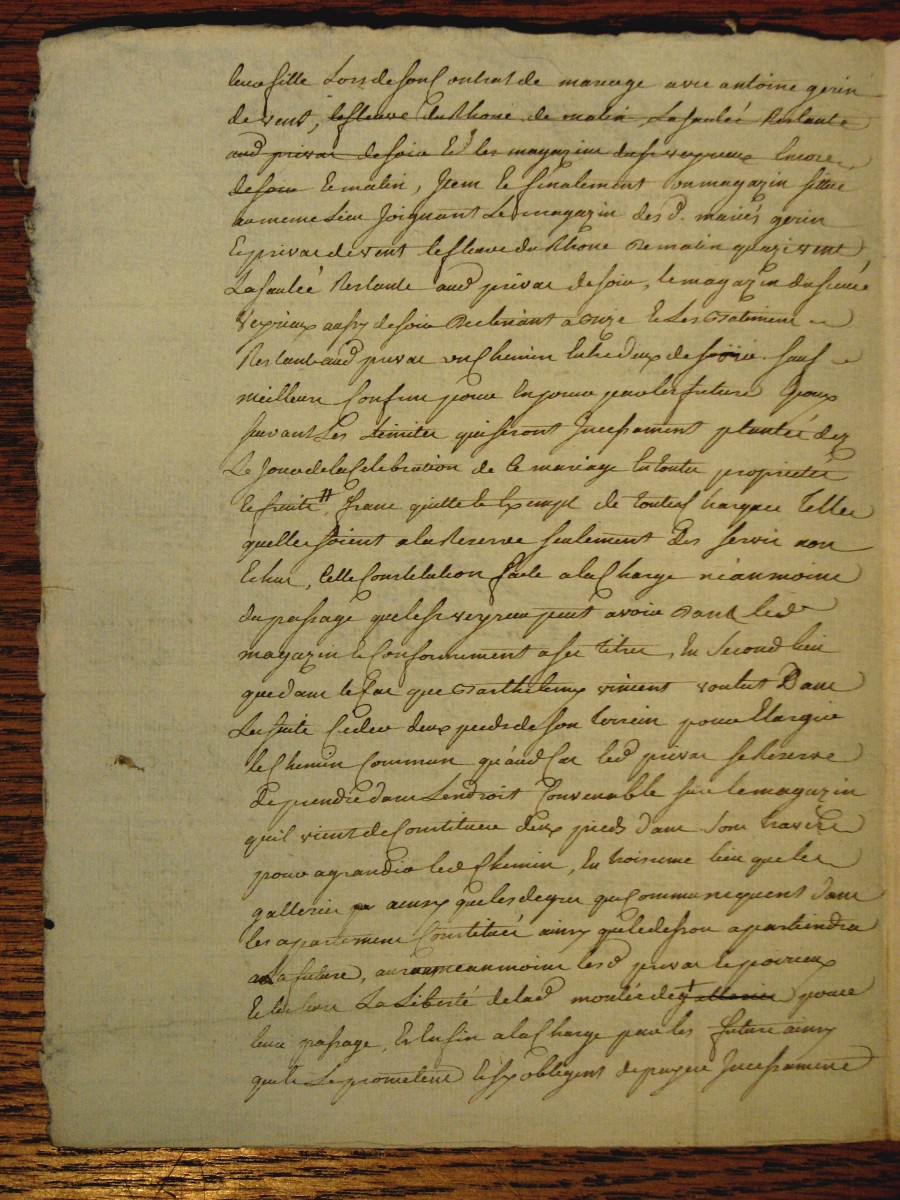 leur fille Lors de son Contrat de mariage avec antoine gerin
de vent, le fleuve du Rhone de matin, La faulcé Restante
aud privat de soir Et les magazins du sr veyreux Encore
de soir Et matin, Item Et finalement un magazin sittué
au meme Lieu Joignant Le magazin des d. mariés gerin
Et privat de vent le fleuve du Rhone De matin quazi vent
La faulcé Restante aud privat de soir, le magazin du sieur
veyrieux aussy de soir Declinant a Bize Et Les Batiment
Restant aud privat un Chemin Entre deux de soir sauf
meilleurs Confins pour En jouir par les future Epoux
suivant Les Limites qui seront Incessament plantée dez
Le Jour de la Celebration de Ce mariage En toutte proprieté
Et fruits # franc quitte Et Exempt de toutes Charges Telles
quelles soient a la Reserve seulement Des servis non
Echus, Cette Constitution faite a la Charge néanmoins
du passage que le sr veyreux peut avoir Dans led
magazin Et Conformement a ses titres, En second lieu
que dans le Cas que Barthelemy vincent voulut Dans
La suite Ceder deux pieds de son terrein pour Elargir
le Chemin Commun qu'audt Cas led privat se Reserve
De prendre dans L'endroit Convenable sur le magazin
qu'il vient de Constituer deux pieds dans son travers
pour agrandir led Chemin, En troisieme lieu que les
galleries ainsy que les degres qui Communiquent Dans
les apartement Constitué ainsy que le dessous apartiendra
a La future, auront neanmoins lesd privat
Et les siens La Liberté de lad montée de gallerie pour
leur passage, Et Enfin a la Charge par les future ainsy
qu'ils Le promettent Et s'y obligent de payer Incessament